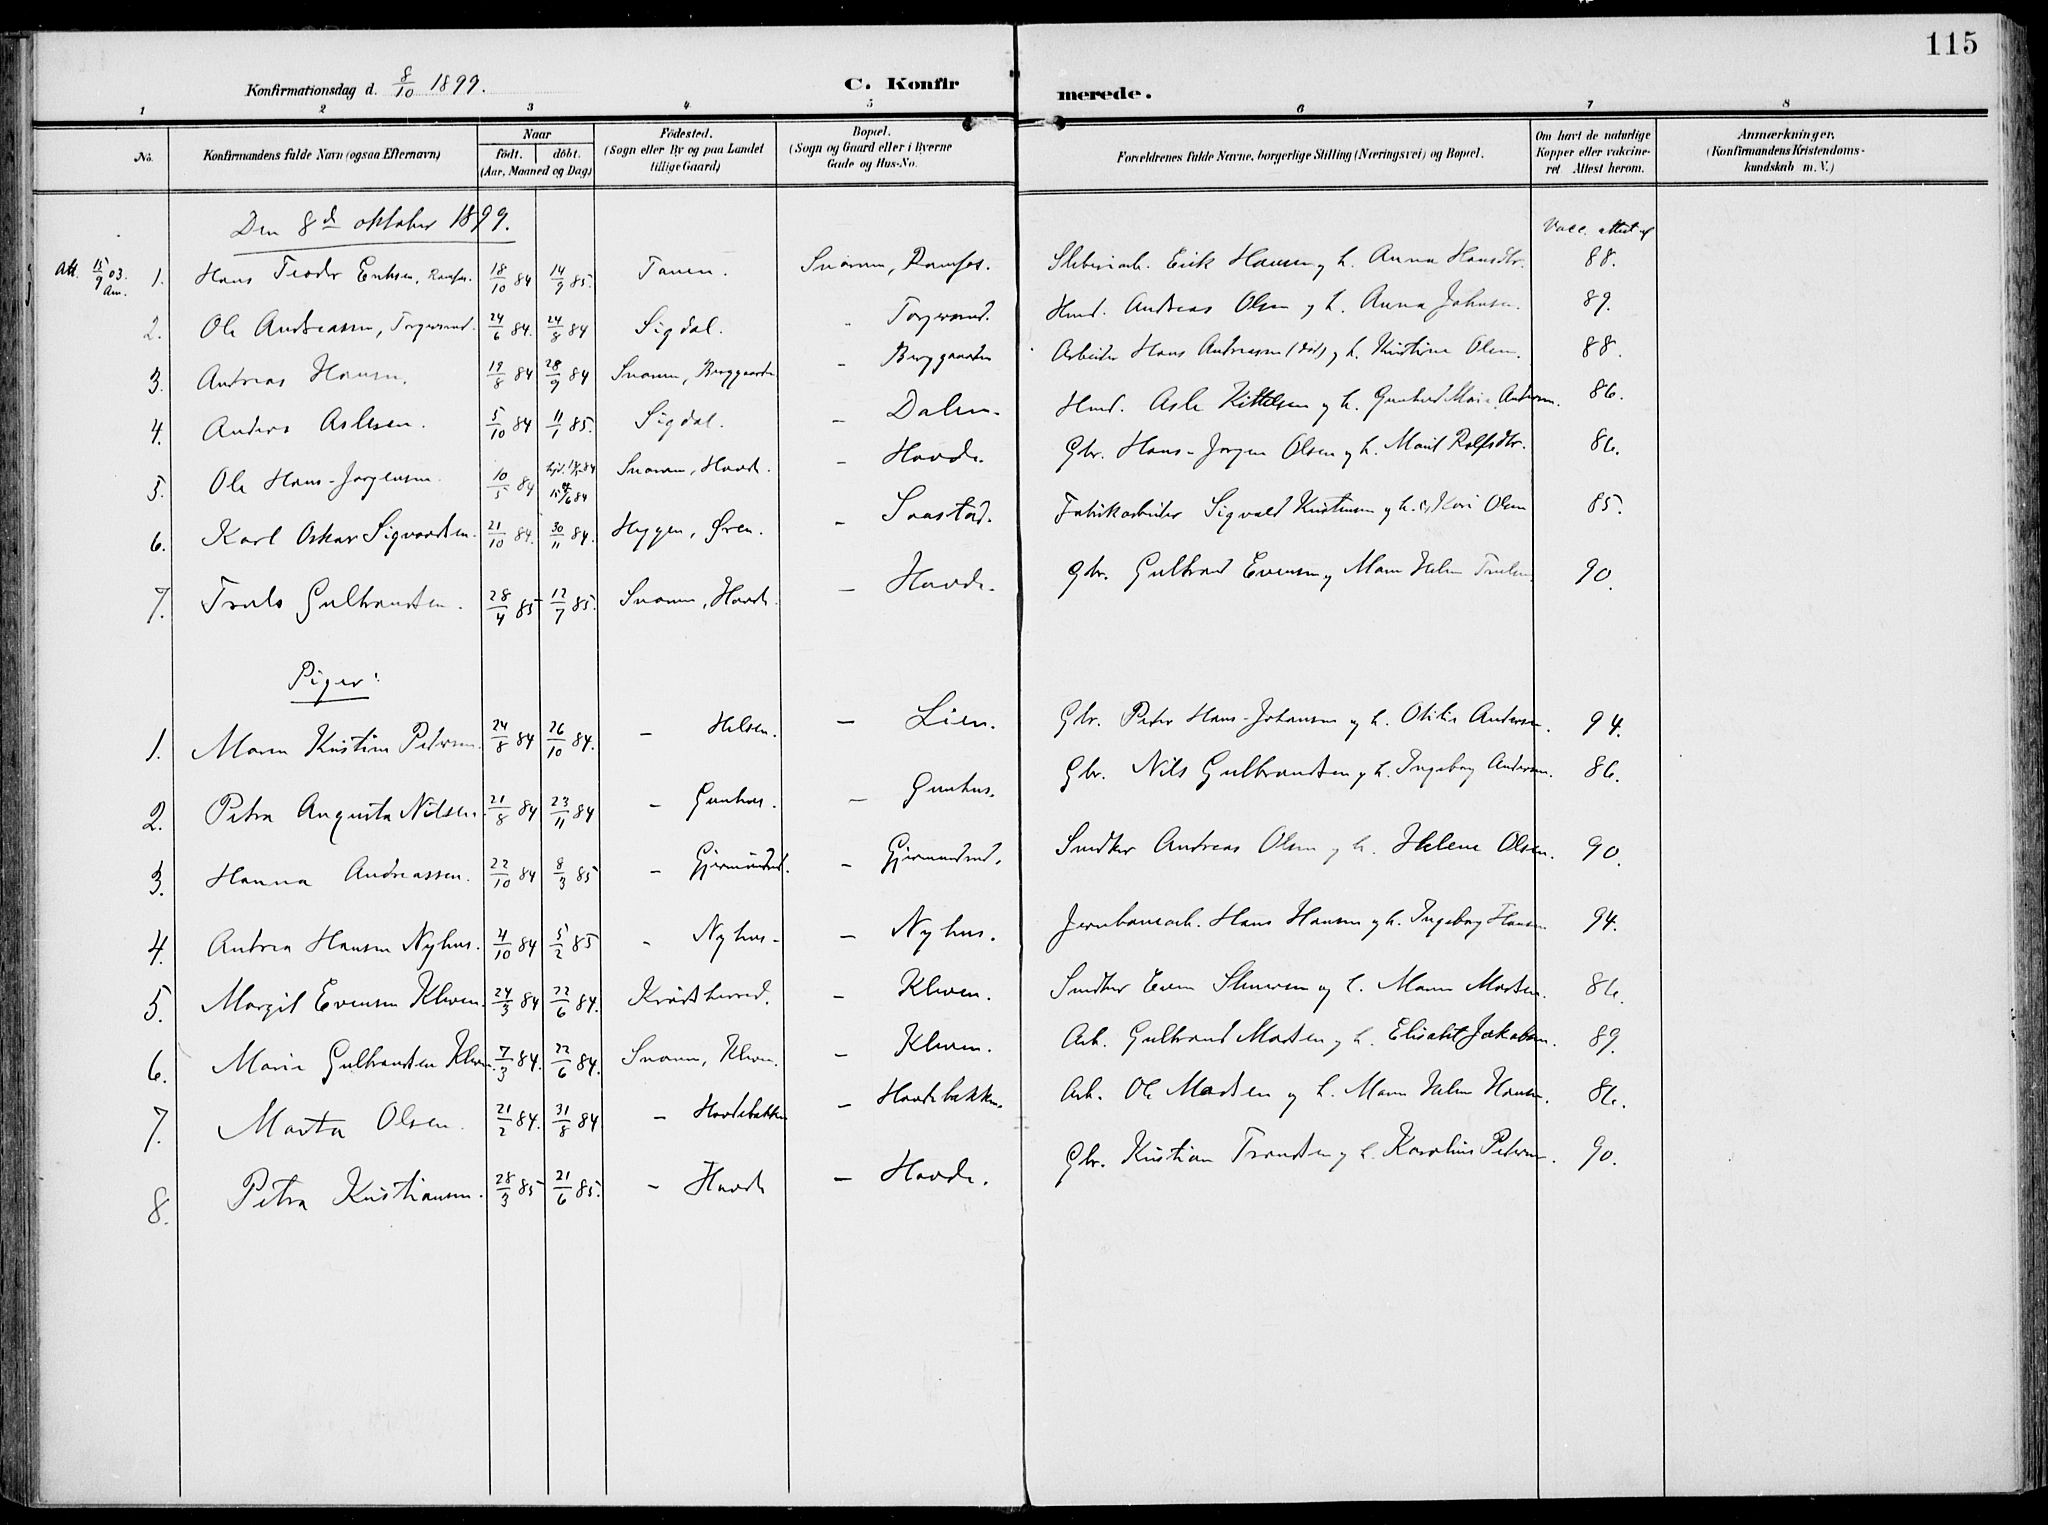 115
Konfirmationsdag d. 8/10 1899.
C. Konfirmerede.
1 2 3 4 5 6 7 8
No.
Konfirmandens fulde Navn (ogsaa Efternavn)
Naar
födt. döbt.
(Aar, Maaned og Dag)
Födested.
(Sogn eller By og paa Landet
tillige Gaard)
Bopæl.
(Sogn og Gaard eller i Byerne
Gade og Hus-No.
Forældrenes fulde Navne, borgerlige Stilling (Næringsvei) og Bopæl.
Om havt de naturlige
Kopper eller vakcine-
ret Attest herom.
Anmærkninger.
(Konfirmandens Kristendoms-
kundskab m. V.)
Den 8d oktober 1899.
Vacc. attest af
Att. 15/9 03. 1. Hans Teodor Eriksen, 18/10 84 14/9 85. Snarum, Erik Hansen og h. Anna Hansdtr. 88.
2. Ole Andreassen, Torgersrud. 24/6 84. 24/8 84 Sigdal. Torgersrud. Andreas Olsen og h. Anna Johnsen. 89.
3. Andreas Hansen. 19/8 84 28/9 84 Snarum, Berggaarden – Berggaarden Arbeider Hans Andreassen (död) og h. Kristine Olsen. 88.
4. Anders Aslesen. 5/10 84 11/1 85. Sigdal. – Dalen. Asle Kittelsen og h. Gunhild Marie Andersen. 86.
5. Ole Hans-Jørgensen. 10/5 84 15/6 84 Snarum, Hovde. – Hovde. Gbr. Hans-Jørgen Olsen og h. Marit Rolfsdtr. 86.
6. Karl Oskar Sigvardsen. 21/10 84. 30/11 84. Hyggen, Øren. – Saastad. Fabrikarbeider Sigvald Kristensen og h. Kari Olsen 85.
7. Truls Gulbrandsen. 28/4 85 12/7 85. Snarum, Hovde. – Hovde. Gbr. Gulbrand Evensen og Maren Helene Trulsen 90.
Piger:
1. Maren Kristine Petersen. 24/8 84 26/10 84. – Helsen. – Lien. Gbr. Peter Hans-Johansen og h. Otilie Andersen. 94.
2. Petra Augusta Nilsen. 21/8 84 23/11 84 – Gunhus. – Gunhus. Gbr. Nils Gulbrandsen og h. Ingeborg Andersen. 86.
3. Hanna Andreassen. 22/10 84 8/3 85 – Gjermundrud. – Gjermundrud. Snedker Andreas Olsen og h. Helene Olsen. 90.
4. Andrea Hansen Nyhus. 4/10 84 5/2 85 – Nyhus. – Nyhus. Jernbanearb. Hans Hansen og h. Ingeborg Hansen 94.
5. Margit Evensen Kleven. 24/3 84 22/6 84. Krödsherred. – Kleven. Snedker Even og h. Maren Madsen. 86.
6. Marie Gulbrandsen Kleven. 7/3 84. 22/6 84. Snarum, Kleven. – Kleven. Arb. Gulbrand Madsen og h. Elisabet Jakobsen. 89.
7. Marta Olsen. 21/2 84. 31/8 84 – Hovdebakken – Hovdebakken. Arb. Ole Madsen og h. Maren Helene Hansen. 86.
8. Petra Kristiansen. 28/3 85 21/6 85. – Hovde – Hovde. Gbr. Kristian Trondsen og h. Karoline Petersen. 90.